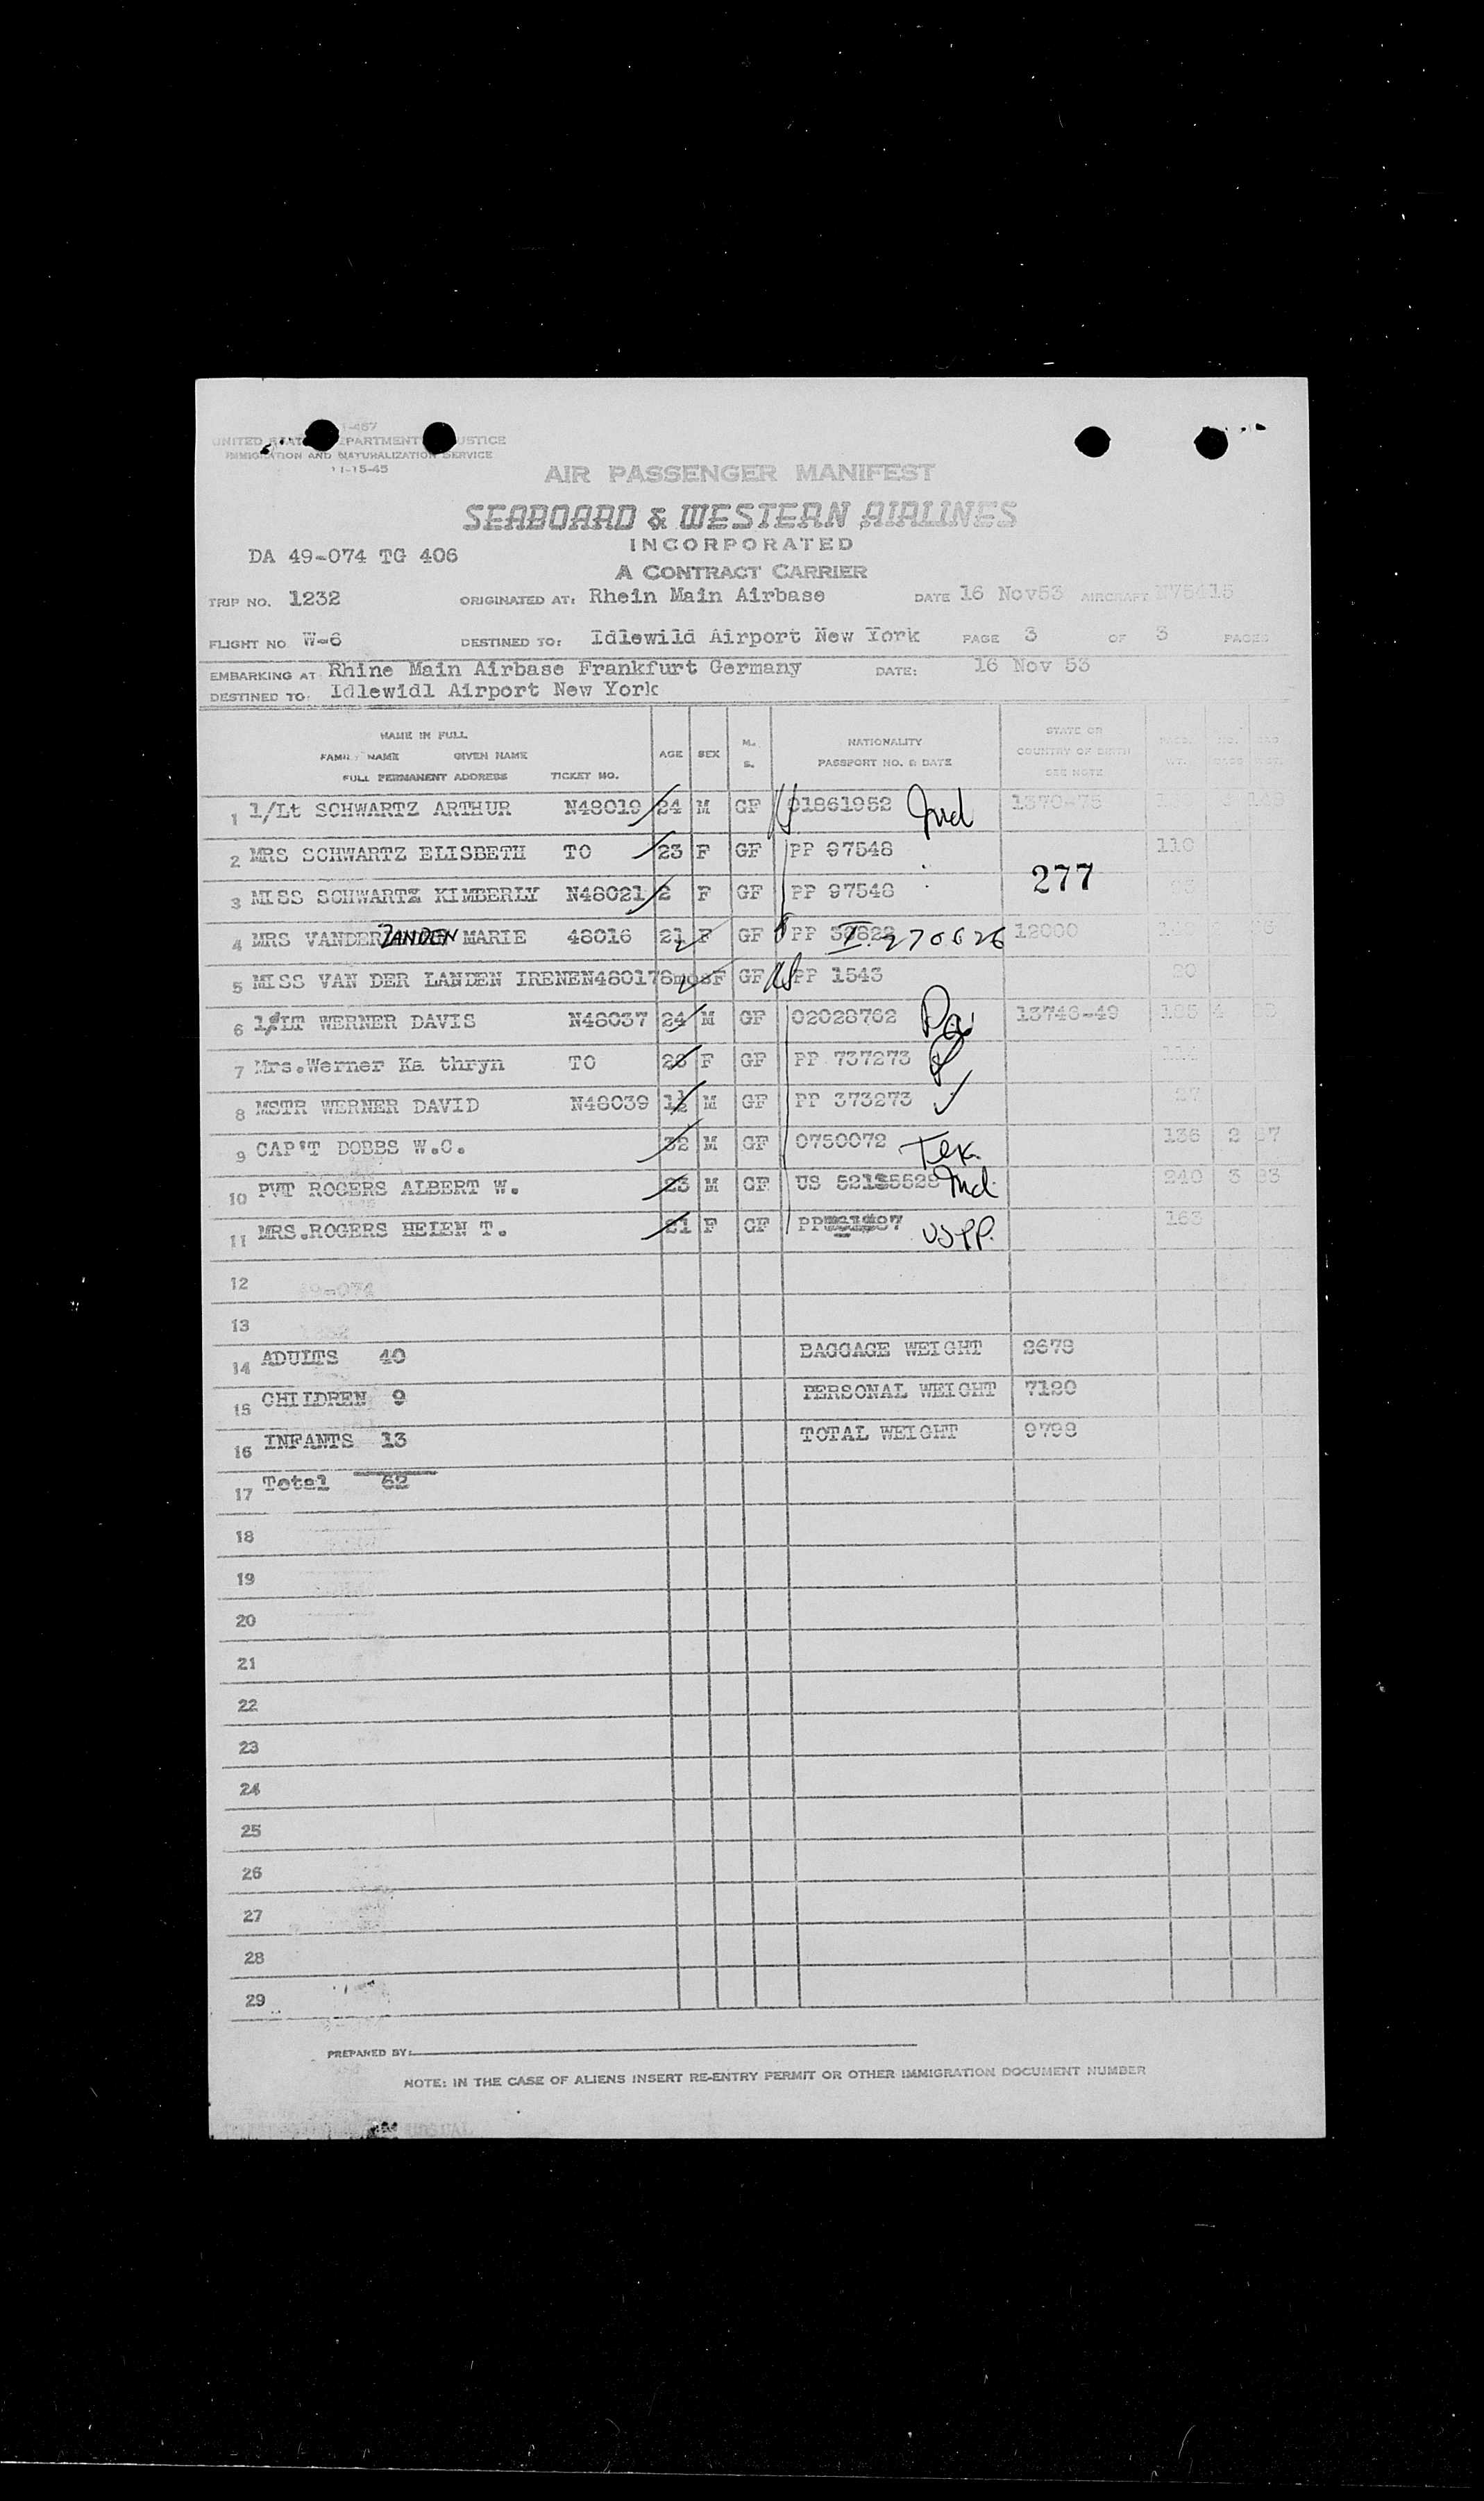 I-467
UNITED STATES DEPARTMENT JUSTICE
IMMIGRATION AND NATURALIZATION SERVICE
11-15-45
AIR PASSENGER MANIFEST
SEABOARD & WESTERN AIRLINES
INCORPORATED
DA 49-074 TG 406
A CONTRACT CARRIER
TRIP NO. 1232 ORIGINATED AT: Rhein Main Airbase DATE 16 Nov53 AIRCRAFT N75415
FLIGHT NO W-6 DESTINED TO: Idlewild Airport New York PAGE 3 OF 3 PAGES
EMBARKING AT Rhine Main Airbase Frankfurt Germany DATE: 16 Nov 53
DESTINED TO. Idlewidl Airport New York
NAME IN FULL
FAMILY NAME GIVEN NAME
FULL PERMANENT ADDRESS TICKET NO. AGE SEX M. S. NATIONALITY PASSPORT NO. & DATE STATE OR COUNTRY OF BIRTH SEE NOTE
1 1/Lt SCHWARTZ ARTHUR N48019 24 M GF 01861952 Ind 1370-75
2 MRS SCHWARTZ ELISBETH TO 23 F GF PP 97548 110
3 MISS SCHWARTZ KIMBERLY N48021 2 F GF PP 97548 277
4 MRS VANDER ZANDEN MARIE 48016 21 F GF PP I.270626 12000
5 MISS VAN DER LANDEN IRENEN480178mosF GF PP 1543 20
6 1/LT WERNER DAVIS N48037 24 M GF 02028762 Pa 13746-49
7 Mrs.Werner Ka thryn TO 28 F GF PP 737273
8 MSTR WERNER DAVID N48039 1½ M GF PP 373273 27
9 CAP'T DOBBS W.C. 32 M GF 0750072 Tex. 136 2
10 PVT ROGERS ALBERT W. 23 M GF US Ind. 240 3
11 MRS.ROGERS HELEN T. 21 F GF PP USPP. 163
12 49-074
13
14 ADULTS 40 BAGGAGE WEIGHT 2678
15 CHILDREN 9 PERSONAL WEIGHT 7120
16 INFANTS 13 TOTAL WEIGHT 9798
17 Total 62
18
19
20
21
22
23
24
25
26
27
28
29
PREPARED BY:
NOTE: IN THE CASE OF ALIENS INSERT RE-ENTRY PERMIT OR OTHER IMMIGRATION DOCUMENT NUMBER